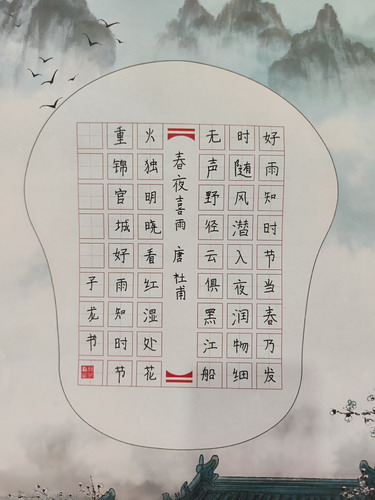 好雨知时节当春乃发
时随风潜入夜润物细
无声野径云俱黑江船
春夜喜雨 唐 杜甫
火独明晓看红湿处花
重锦官城好雨知时节
子龙书